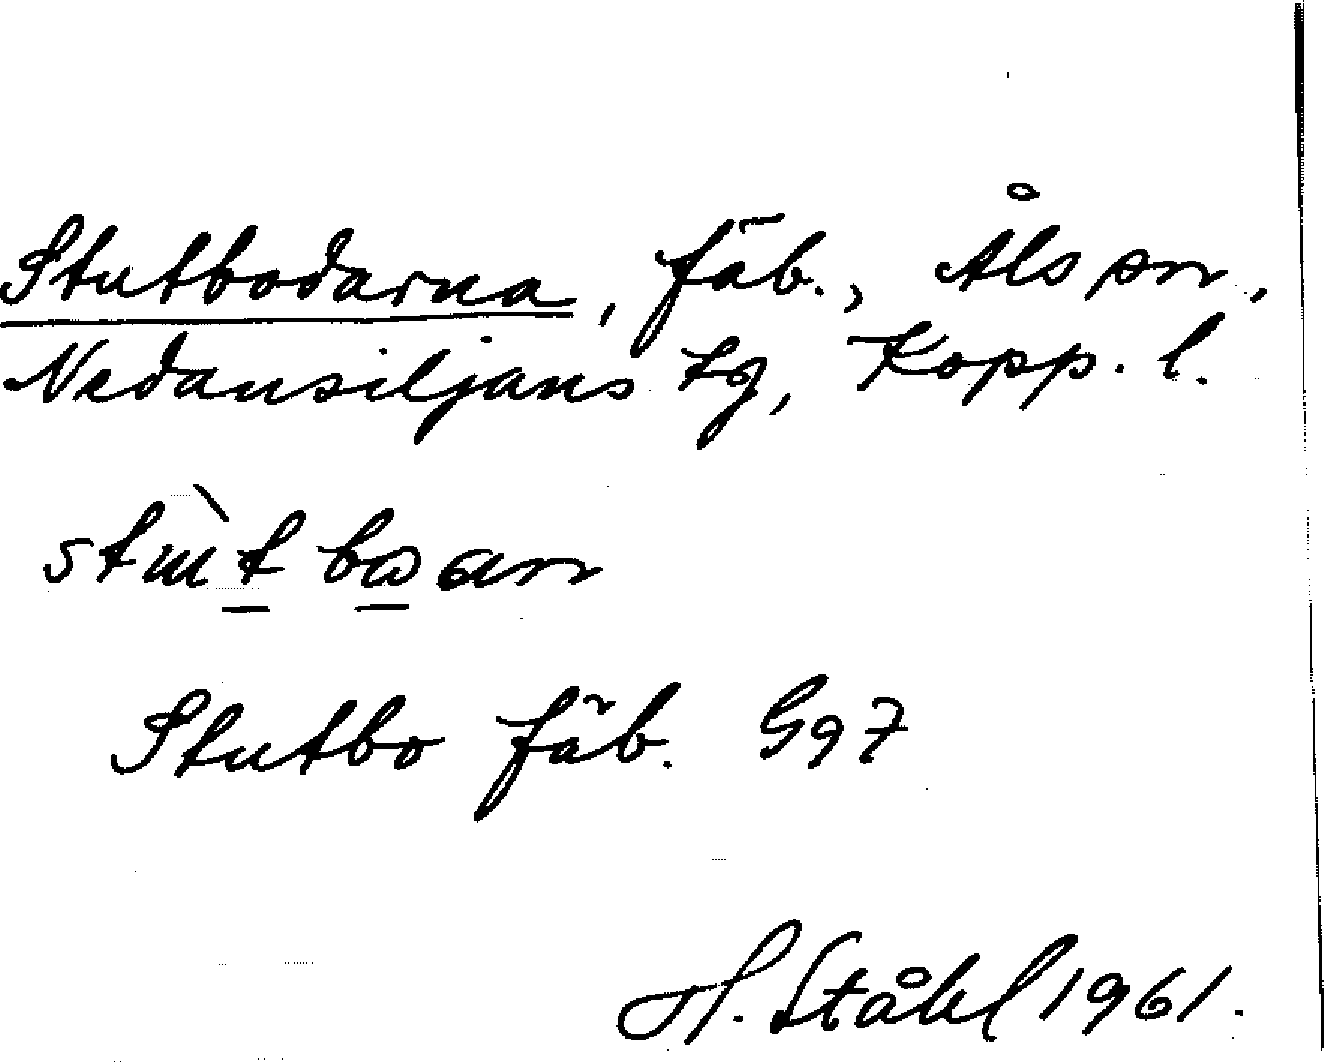 Stutbodarna, fäb., Åls sn,
Nedansiljans tg, Kopp. l.
Stutbo fäb. G97
H. Ståhl 1961.